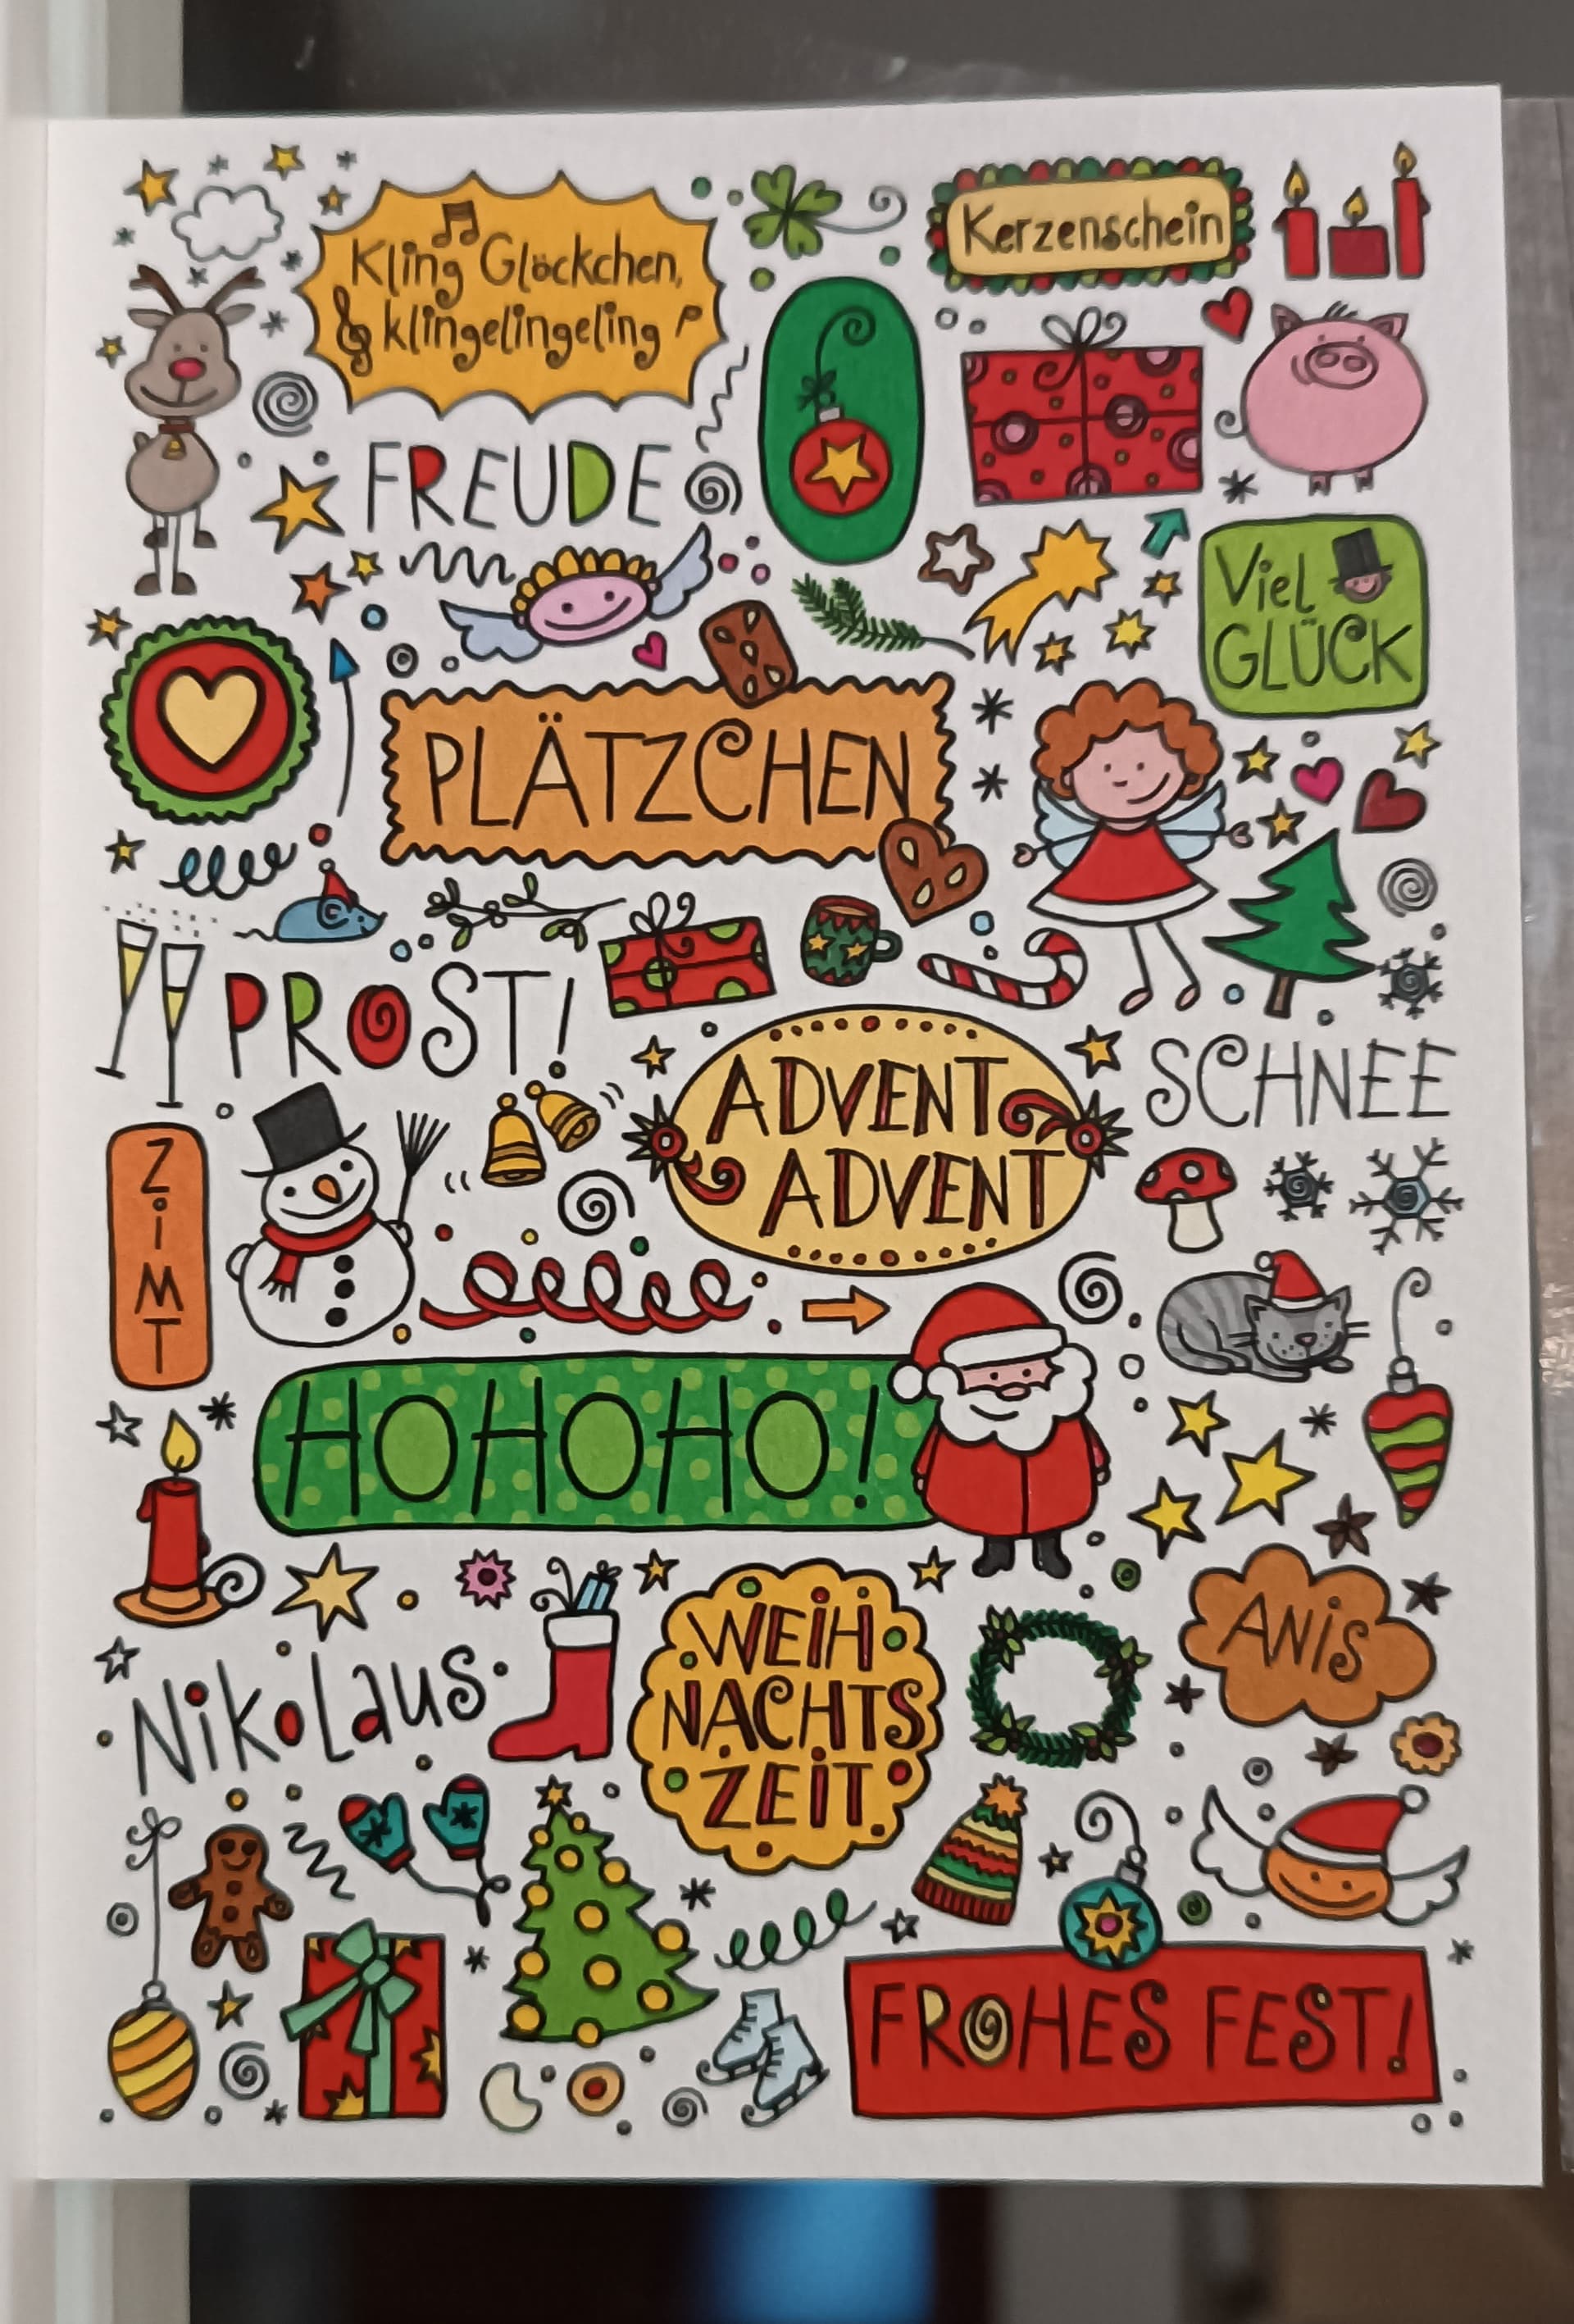 Kling Glöckchen,
klingelingeling
Kerzenschein
FREUDE
Viel
GLÜCK
PLÄTZCHEN
PROST!
ADVENT
ADVENT
SCHNEE
ZiMT
HOHOHO!
NiKoLaus
WEiH
NACHTS
ZEiT
ANiS
FROHES FEST!